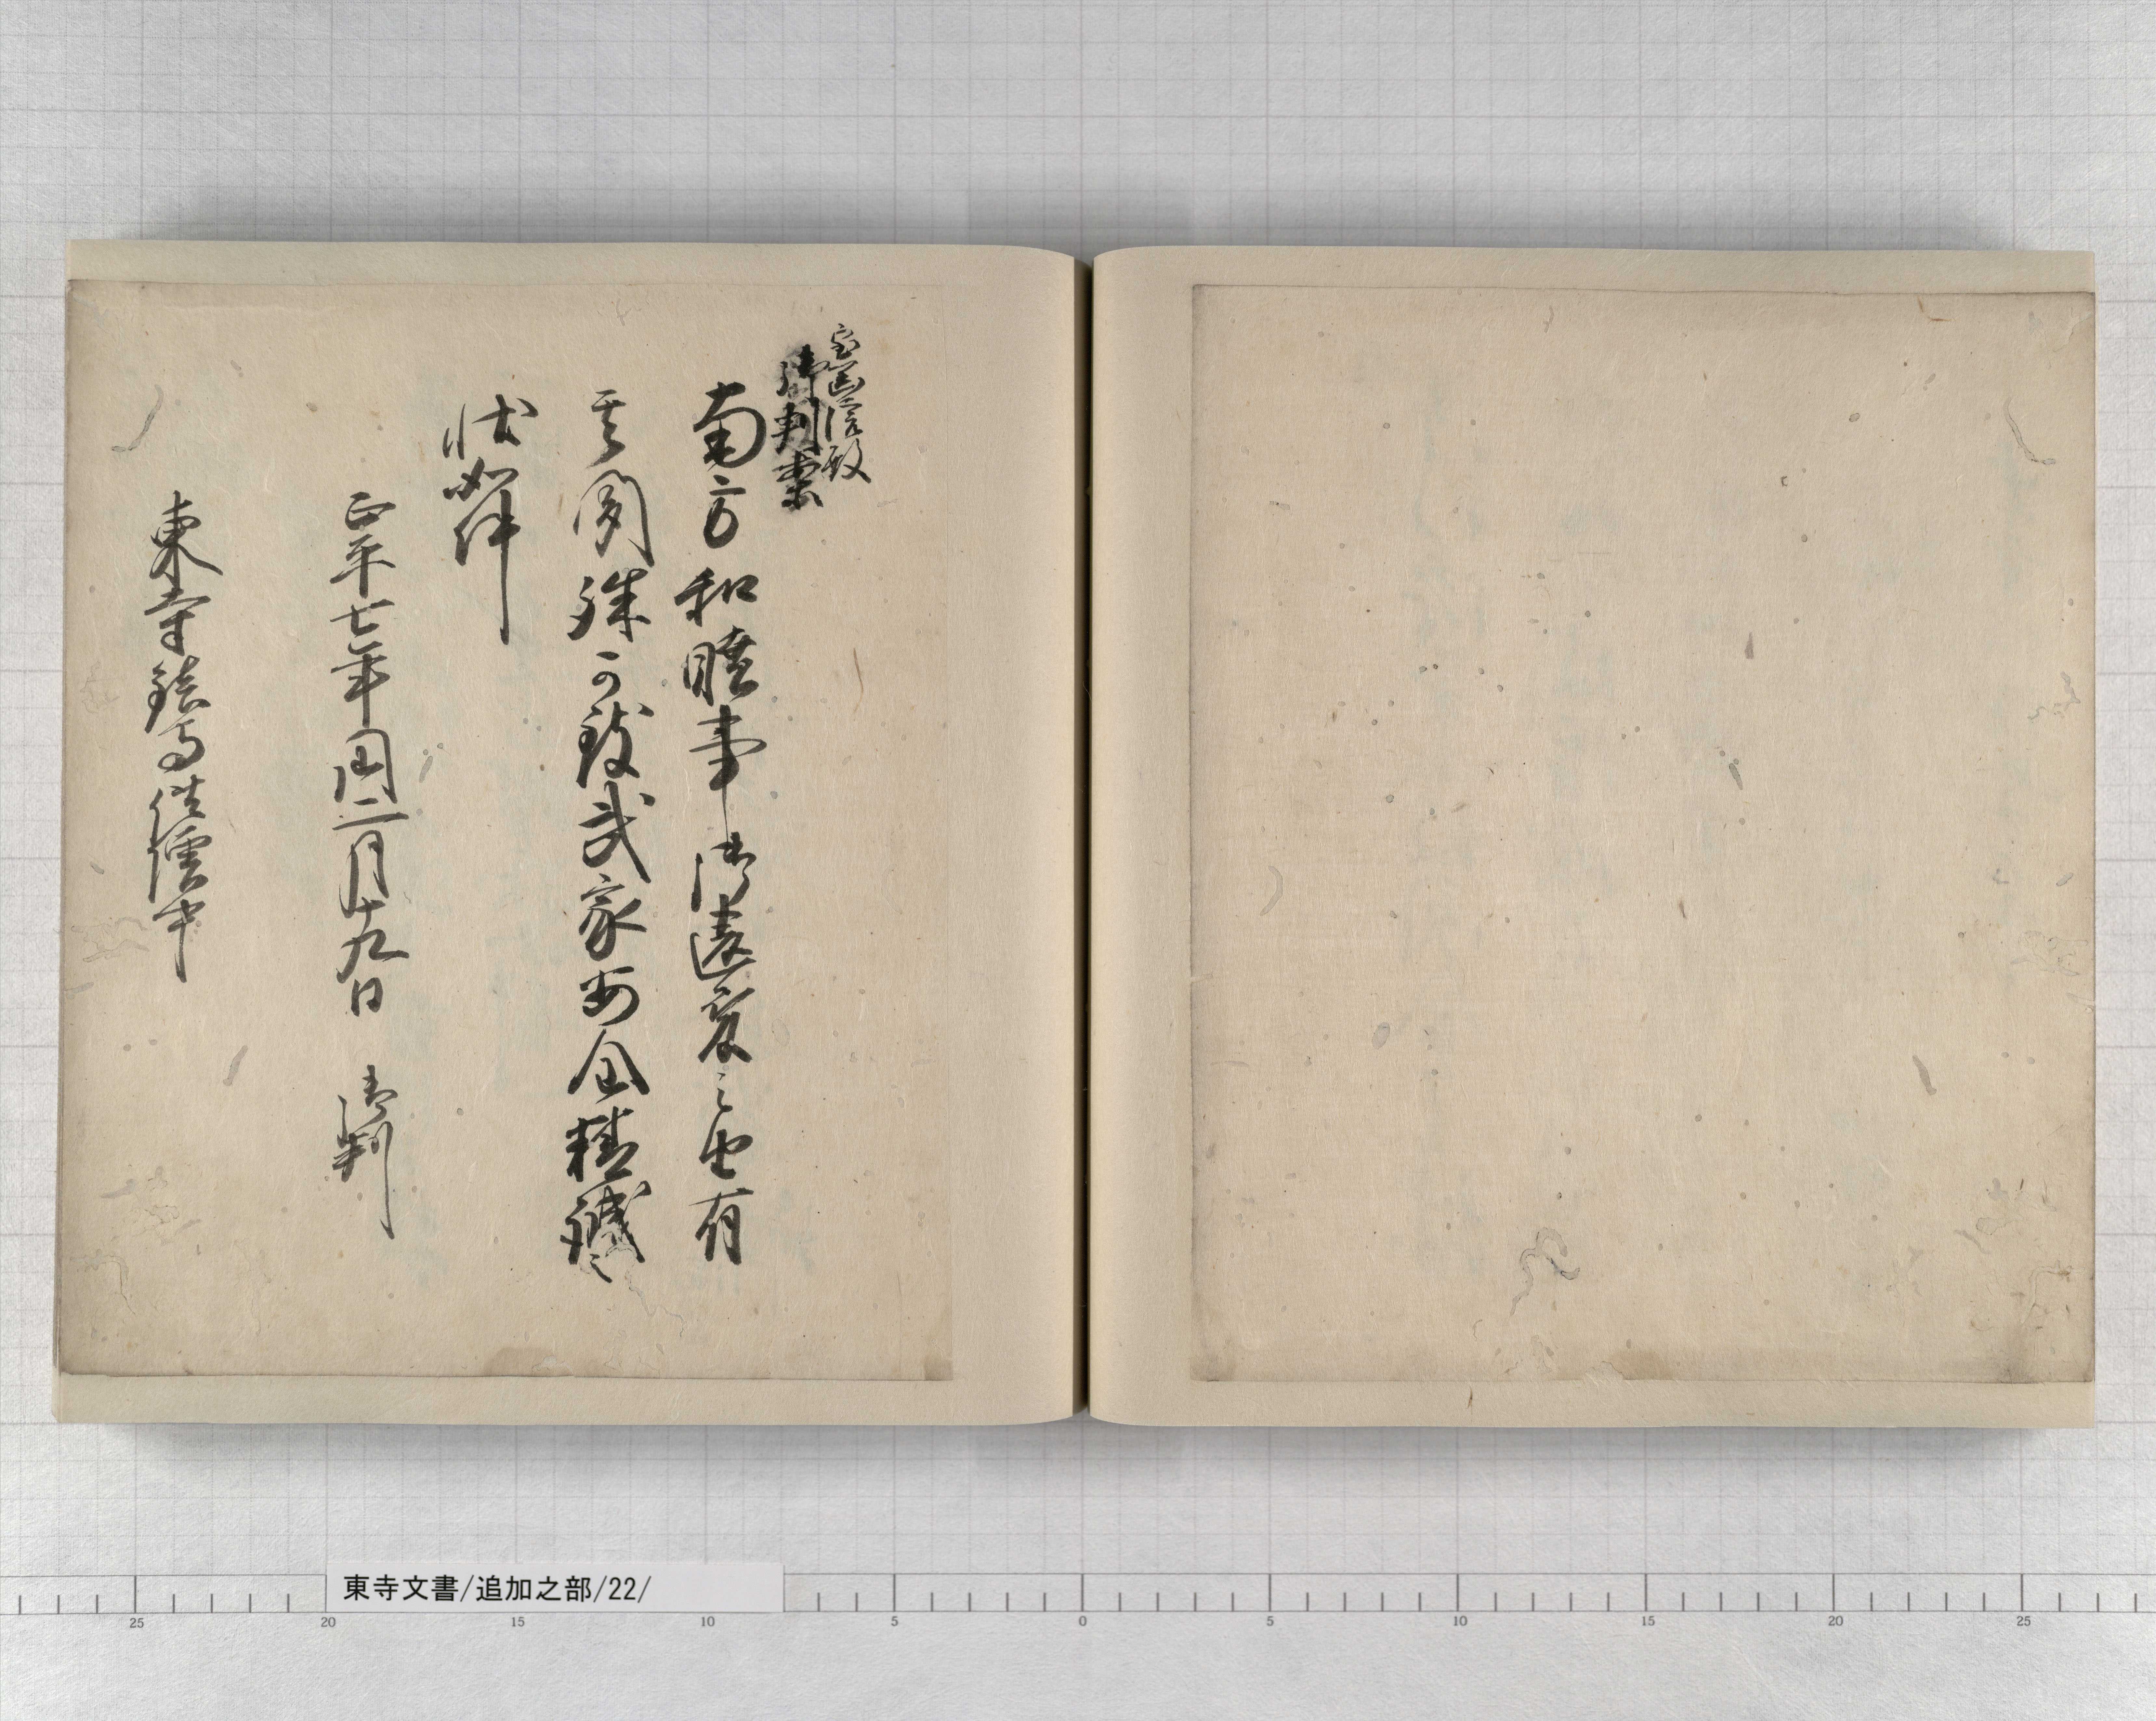 宝篋院殿
御判案
南方和睦事御違変之由有
其聞殊可致武家安全精誠之
状如件
正平七年閏二月十九日　御判
東寺鎮守供僧中
東寺文書/追加之部/22/
25 20 15 10 5 0 5 10 15 20 25